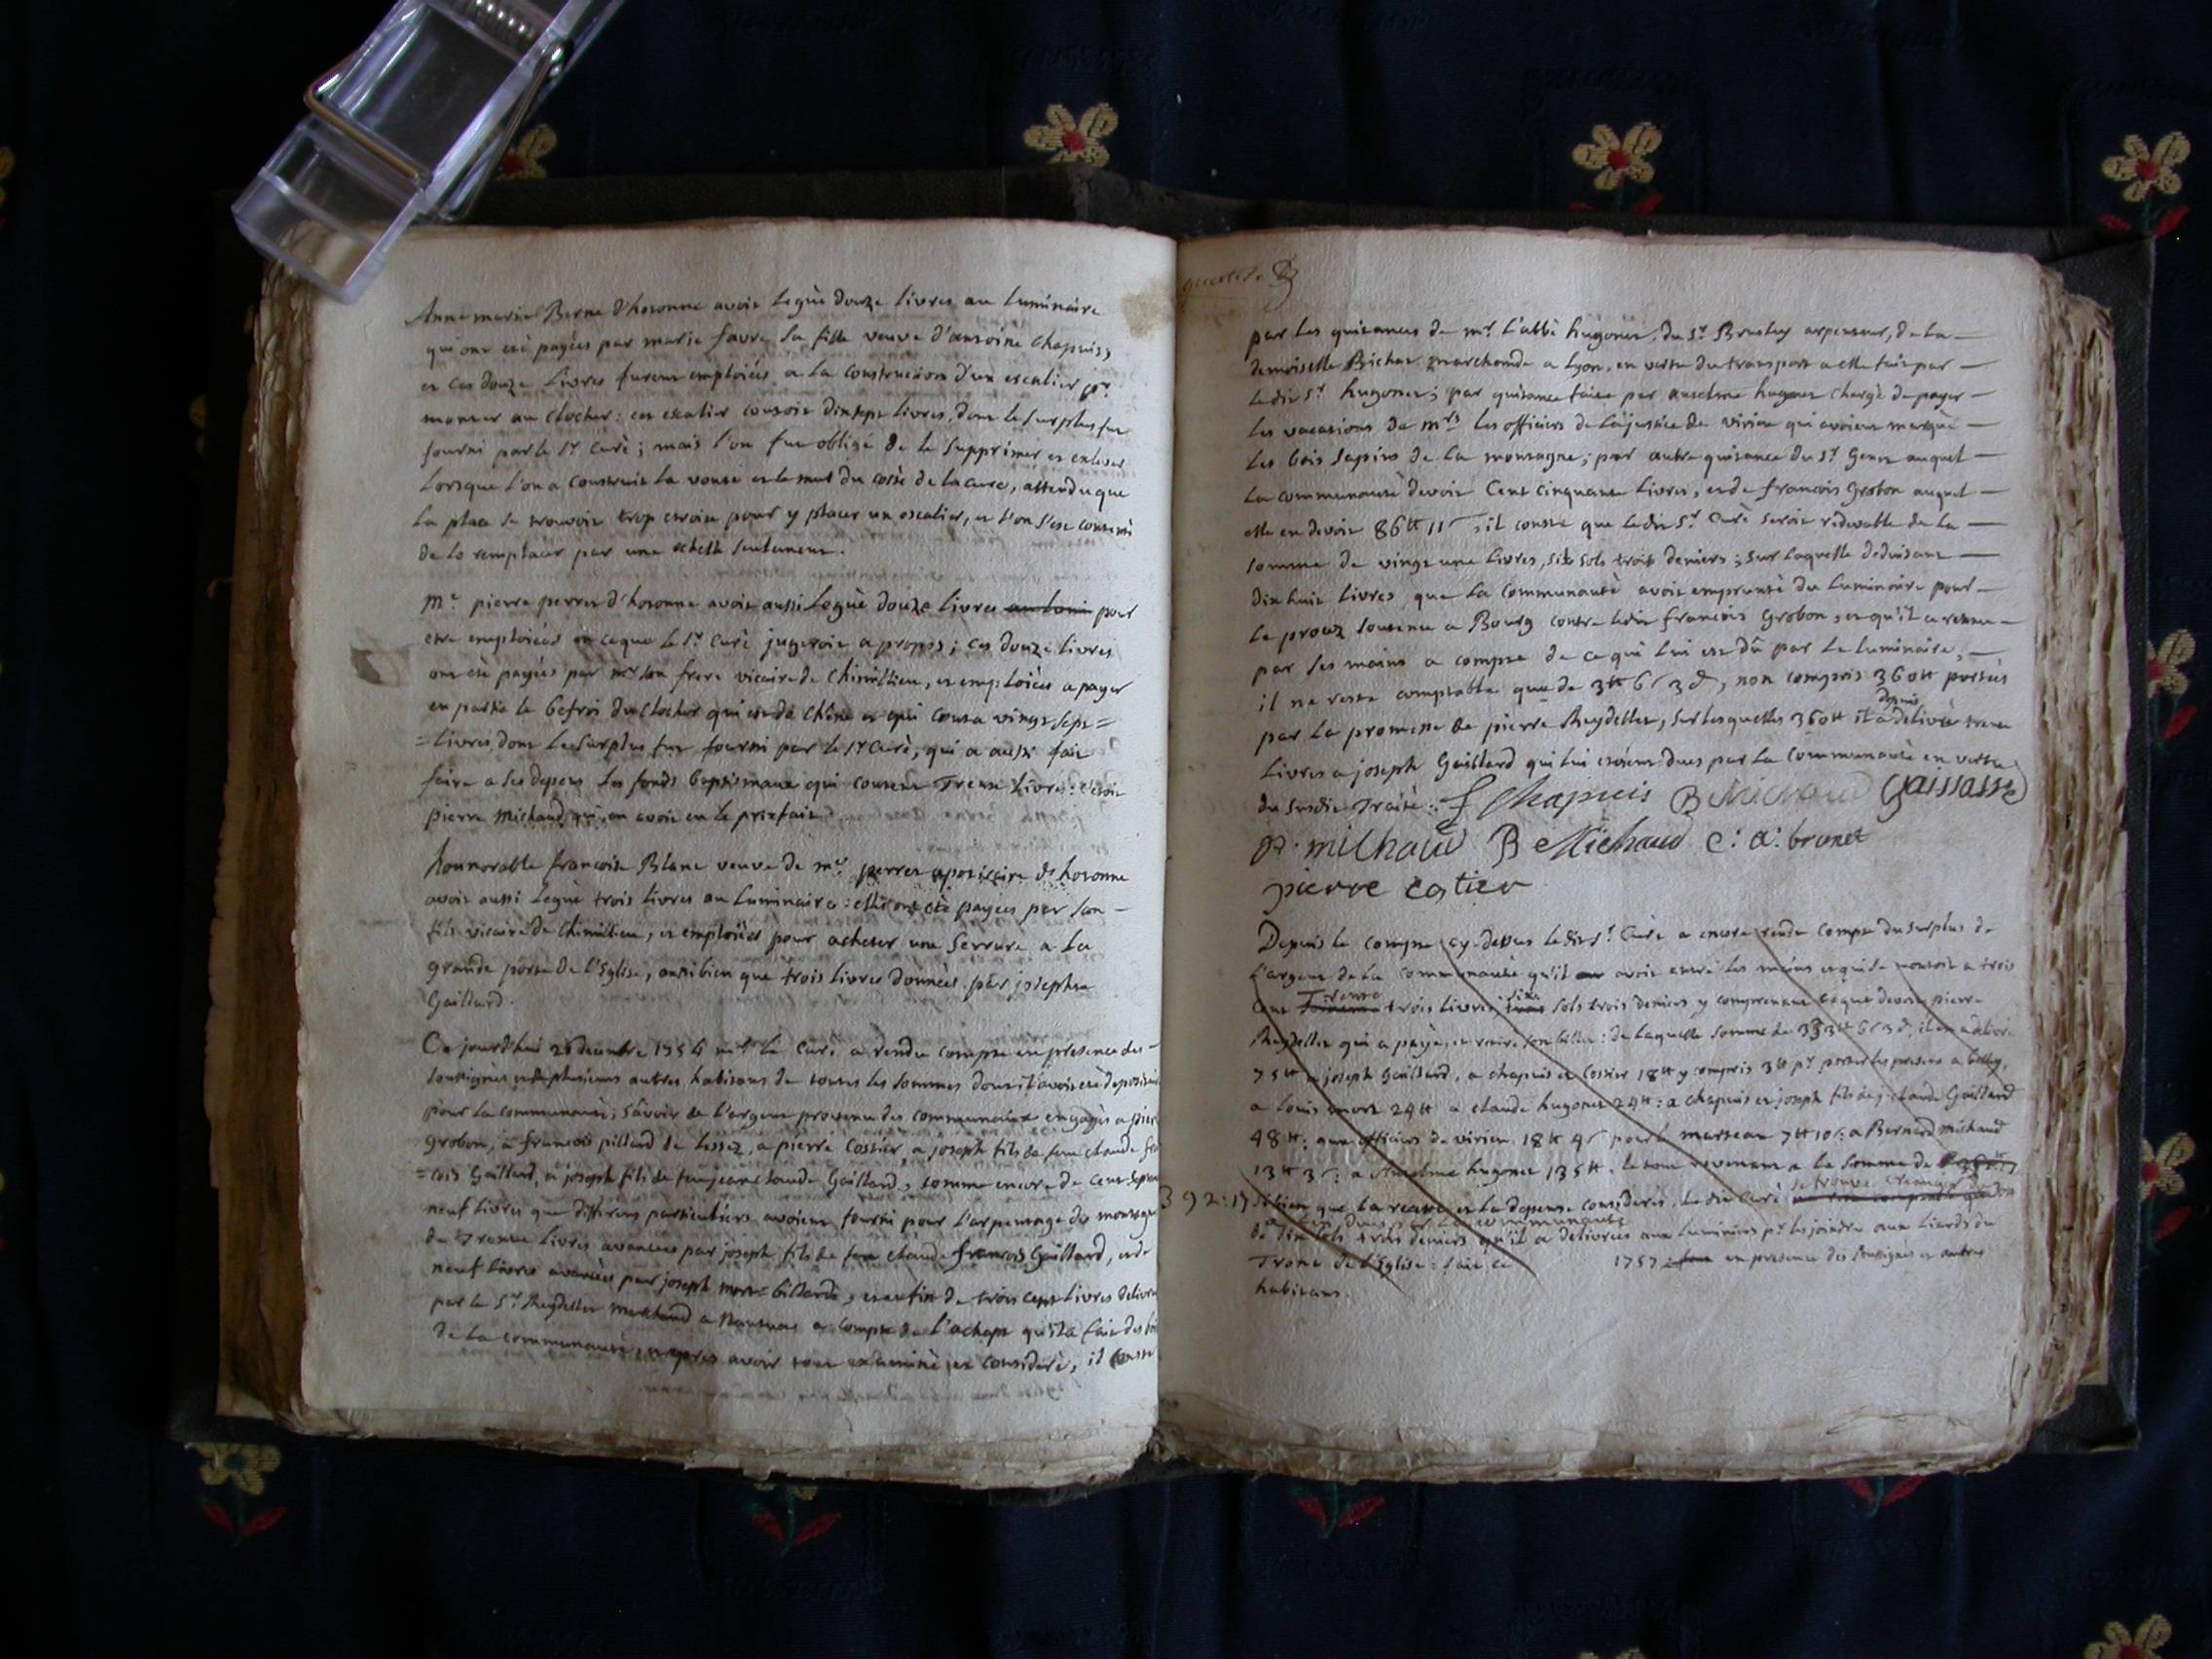 Anne marie Berne d'hotonne avoit leguè douze livres au luminaire
qui ont été payées par marie favre sa fille veuve d'antoine Chapuis,
et ces douze livres furent emploiées a la construction d'un escalier pr.
monter au clocher: cet escalier coutoit dixsept livres, dont le surplus fut
fourni par le sr Curé; mais l'on fut obligé de le supprimer et enlever
Lorsque l'on a construit la voute et le mur du coté de la cure, attendu que
la place se trouvoit trop etroite pour y placer un escalier, et l'on s'est contenté
de le remplacer par une echelle seulement.
Mr. pierre perret d'hotonne avoit aussi leguè douze livres pour
etre emploiées en ce que le sr. Curé jugeroit a propos; ces douze livres
ont été payées par mr son frere vicaire de Chimillieu, et emploiées a payer
en partie le befroi du clocher qui est de chêne et qui couta vingt sept =
= livres, dont le surplus fut fourni par le sr Curé, qui a aussi fait
faire a ses depens les fonds baptismaux qui coutent Trente livres: c'etoit
pierre Michaud qui en avoit eu le prixfait.
honnorable françoise Blanc veuve de mr. perret apoticaire d'hotonne
avoit aussi leguè trois livres au luminaire: elles ont été payées par son -
fils vicaire de Chimillieu, et emploiées pour acheter une serrure a la
grande porte de l'Eglise, aussi bien que trois livres données par josephte
Gaillard.
Ce jourd'hui 26 decembre 1754 mr. le Curé a rendu compte en presence des -
soussignés et de plusieurs autres habitans de toutes les sommes dont il avoit été
pour la communauté; sçavoir de l'argent provenu des communaux engagés a
Grobon, a francois pillard de Lessez, a pierre Costier, a joseph fils de feu claude
= cois Gaillard, a joseph fils de feu jean claude Gaillard, somme encore de cent
neuf livres que differens particuliers avoient fourni pour l'arpentage de montagne
de Trente livres avancées par joseph fils de feu claude francois Gaillard, et de
neuf livres avancées par joseph billard, et enfin de trois cent livres
par le sr. Reydellet Marchand a Nantua a compte de l'achapt qu'il a fait des
de la communauté, et apres avoir tout examiné et consideré, il conste
par les quitances de mr. l'abbé hugonet, du sr. arpenteur, de la -
demoiselle Bichat marchande a Lyon, en vertu du transport a elle fait par -
ledit sr. hugonet; par quitance faite par anselme hugonet chargé de payer -
les vacations de mrs les officiers de la justice de virieu qui avoient marqué -
les bois sapins de la montagne; par autre quitance du sr. Genet auquel -
la communauté devoit Cent cinquante livres, et de francois Grobon auquel -
elle en devoit 86tt 11s, il conste que ledit sr. Curé seroit redevable de la -
somme de vingt une livres, six sols trois deniers; sur laquelle deduisant -
dix huit livres que la communauté avoit emprunté du luminaire pour -
le procez soutenu a Bourg contre ledit francois Grobon, et qu'il a retenu -
par ses mains a compte de ce qui lui est dû par le luminaire, -
il ne reste comptable que de 3tt 6s 3d, non compris 360tt portés
par la promesse de pierre Reydellet, sur lesquelles 360tt il a depuis delivré trente
livres a joseph Gaillard qui lui etoient dues par la communauté en vertu
du susdit Traité. f Chapuis B Michaud Gaissasse
P. milhaud B Michaud C: a: brunet
pierre Cotier
Depuis le compte cy dessus ledit sr. Curé a encore rendu compte du surplus de
l'argent de la communauté qu'il avoit entre les mains et qui se montoit a trois
cent Trente trois livres six sols trois deniers y comprenant ce que devoit pierre
Reydellet qui a payé, et retiré son billet: de laquelle somme de 333tt 6s 3d, il en a delivré
75tt a joseph Gaillard, a chapuis et Costier 18tt y compris 3tt pr porter les presens a belley,
a louis 24tt a claude hugonet 24tt: a chapuis et joseph fils de j. claude Gaillard
48tt: aux officiers de virieu 18tt 4s pour le marteau 7tt 10s: a Bernard michaud
13tt 3s: a Anselme hugonet 135tt. le tout revenant a la somme de
392:17 Si bien que la recette et la depense considerés, ledit Curé se trouve creancier
dues par la communauté
de dix sols trois deniers qu'il a delivrés aux luminiers pr les joindre aux liards du
Tronc de l'Eglise: fait ce 1757 en presence des soussignés et autres
habitans.